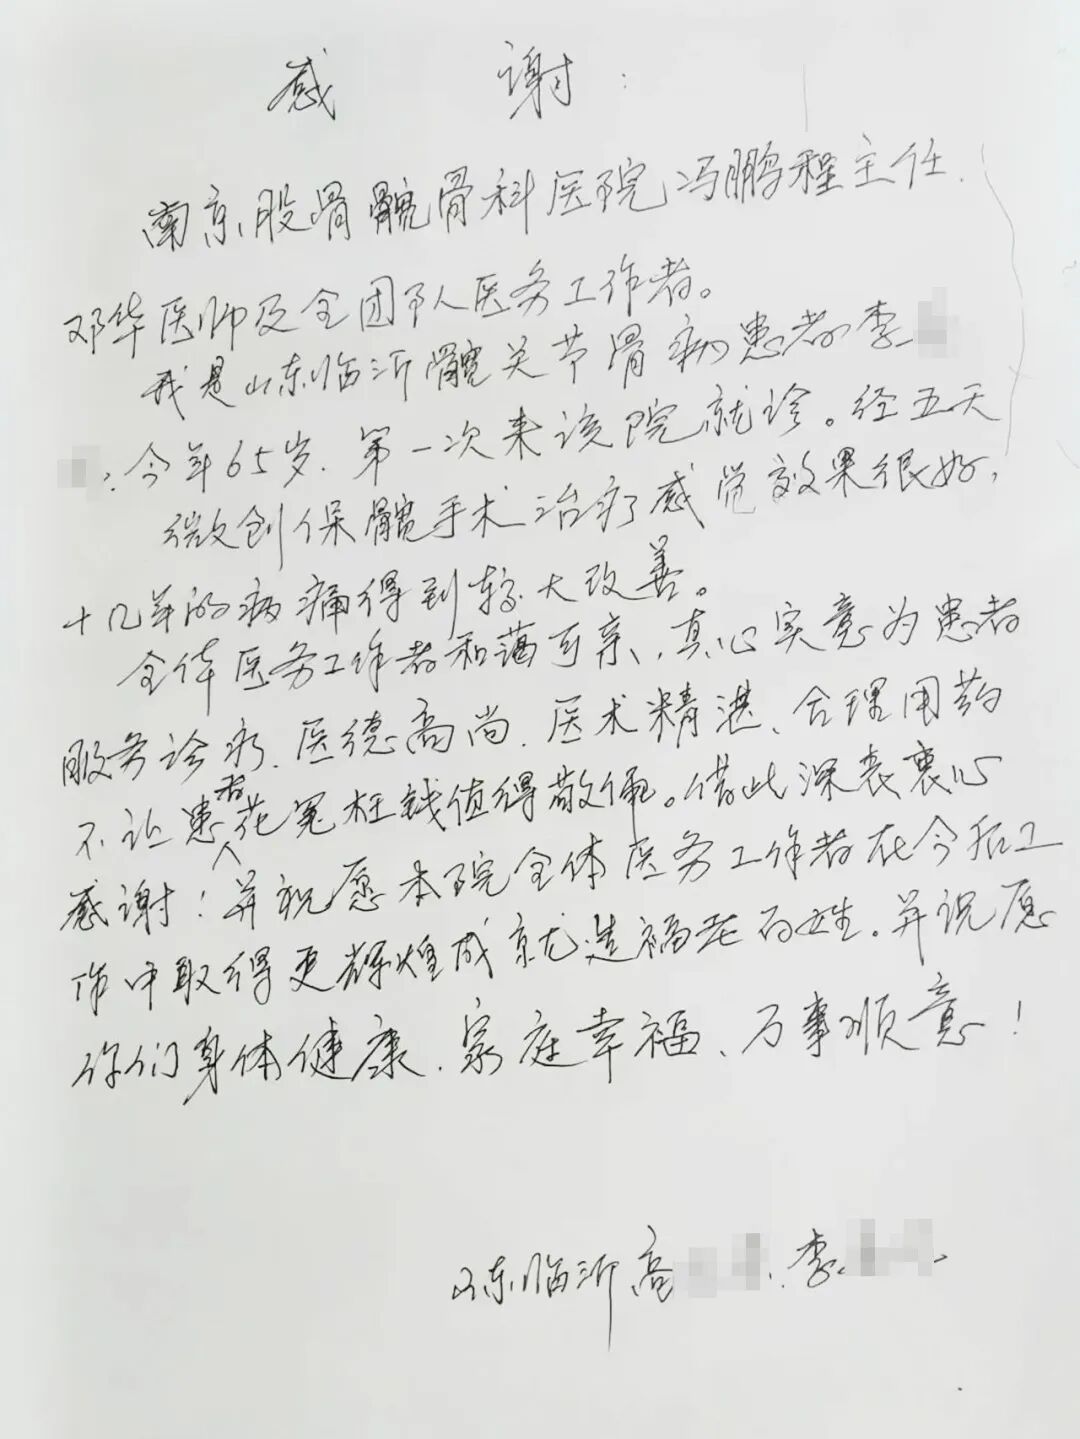 感谢:
南京股骨髋骨科医院冯鹏程主任.
邓华医师及全团队人医务工作者。
我是山东临沂髋关节骨病患者李
今年65岁.第一次来该院就诊。经五天
微创保髋手术治疗感觉效果很好,
十几年的病痛得到较大改善。
全体医务工作者和蔼可亲,真心实意为患者
服务诊疗、医德高尚.医术精湛、合理用药
不让患者花冤枉钱值得敬佩。借此深表衷心
感谢!并祝愿本院全体医务工作者在今后工
作中取得更辉煌成就造福老百姓。并祝愿
你们身体健康.家庭幸福、万事顺意!
山东临沂高 李